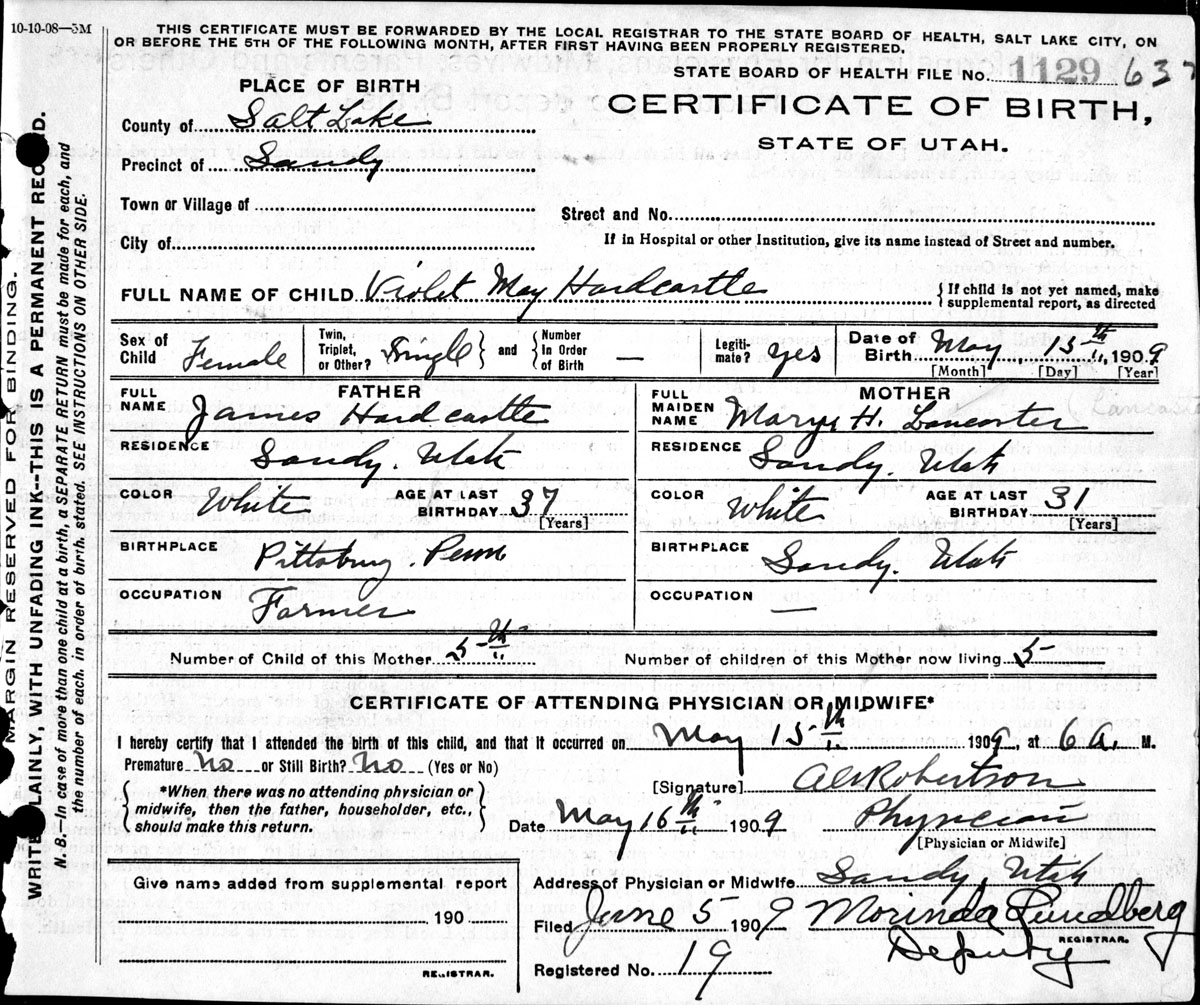 10-10-08—5M
THIS CERTIFICATE MUST BE FORWARDED BY THE LOCAL REGISTRAR TO THE STATE BOARD OF HEALTH, SALT LAKE CITY, ON
OR BEFORE THE 5TH OF THE FOLLOWING MONTH, AFTER FIRST HAVING BEEN PROPERLY REGISTERED.
STATE BOARD OF HEALTH FILE No. 1129 637
PLACE OF BIRTH
CERTIFICATE OF BIRTH,
STATE OF UTAH.
County of Salt Lake
Precinct of Sandy
Town or Village of
Street and No.
City of
If in Hospital or other Institution, give its name instead of Street and number.
FULL NAME OF CHILD Violet May Hardcastle
{If child is not yet named, make
supplemental report, as directed
Sex of Child Female
Twin, Triplet, or Other? Single } and { Number In Order of Birth —
Legiti-mate? yes
Date of Birth May 15th, 1909
[Month] [Day] [Year]
FATHER
FULL NAME James Hardcastle
RESIDENCE Sandy. Utah
COLOR White
AGE AT LAST BIRTHDAY 37
[Years]
BIRTHPLACE Pittsburg. Penn
OCCUPATION Farmer
MOTHER
FULL MAIDEN NAME Mary H. Lancaster
(Lancaste
RESIDENCE Sandy. Utah
COLOR White
AGE AT LAST BIRTHDAY 31
[Years]
BIRTHPLACE Sandy. Utah
OCCUPATION —
Number of Child of this Mother 5th
Number of children of this Mother now living 5
CERTIFICATE OF ATTENDING PHYSICIAN OR MIDWIFE*
I hereby certify that I attended the birth of this child, and that it occurred on May 15th 1909, at 6 a. M.
Premature No or Still Birth? No (Yes or No)
{ *When there was no attending physician or
midwife, then the father, householder, etc.,
should make this return. }
[Signature] Robertson
Date May 16th 1909
Physician
[Physician or Midwife]
Give name added from supplemental report
190
REGISTRAR.
Address of Physician or Midwife Sandy, Utah
Filed June 5 1909 Morinda Lundberg
Deputy REGISTRAR.
Registered No. 19
MARGIN RESERVED FOR BINDING.
WRITE PLAINLY, WITH UNFADING INK--THIS IS A PERMANENT RECORD.
N. B.—In case of more than one child at a birth, a SEPARATE RETURN must be made for each, and
the number of each. in order of birth. stated. SEE INSTRUCTIONS ON OTHER SIDE.